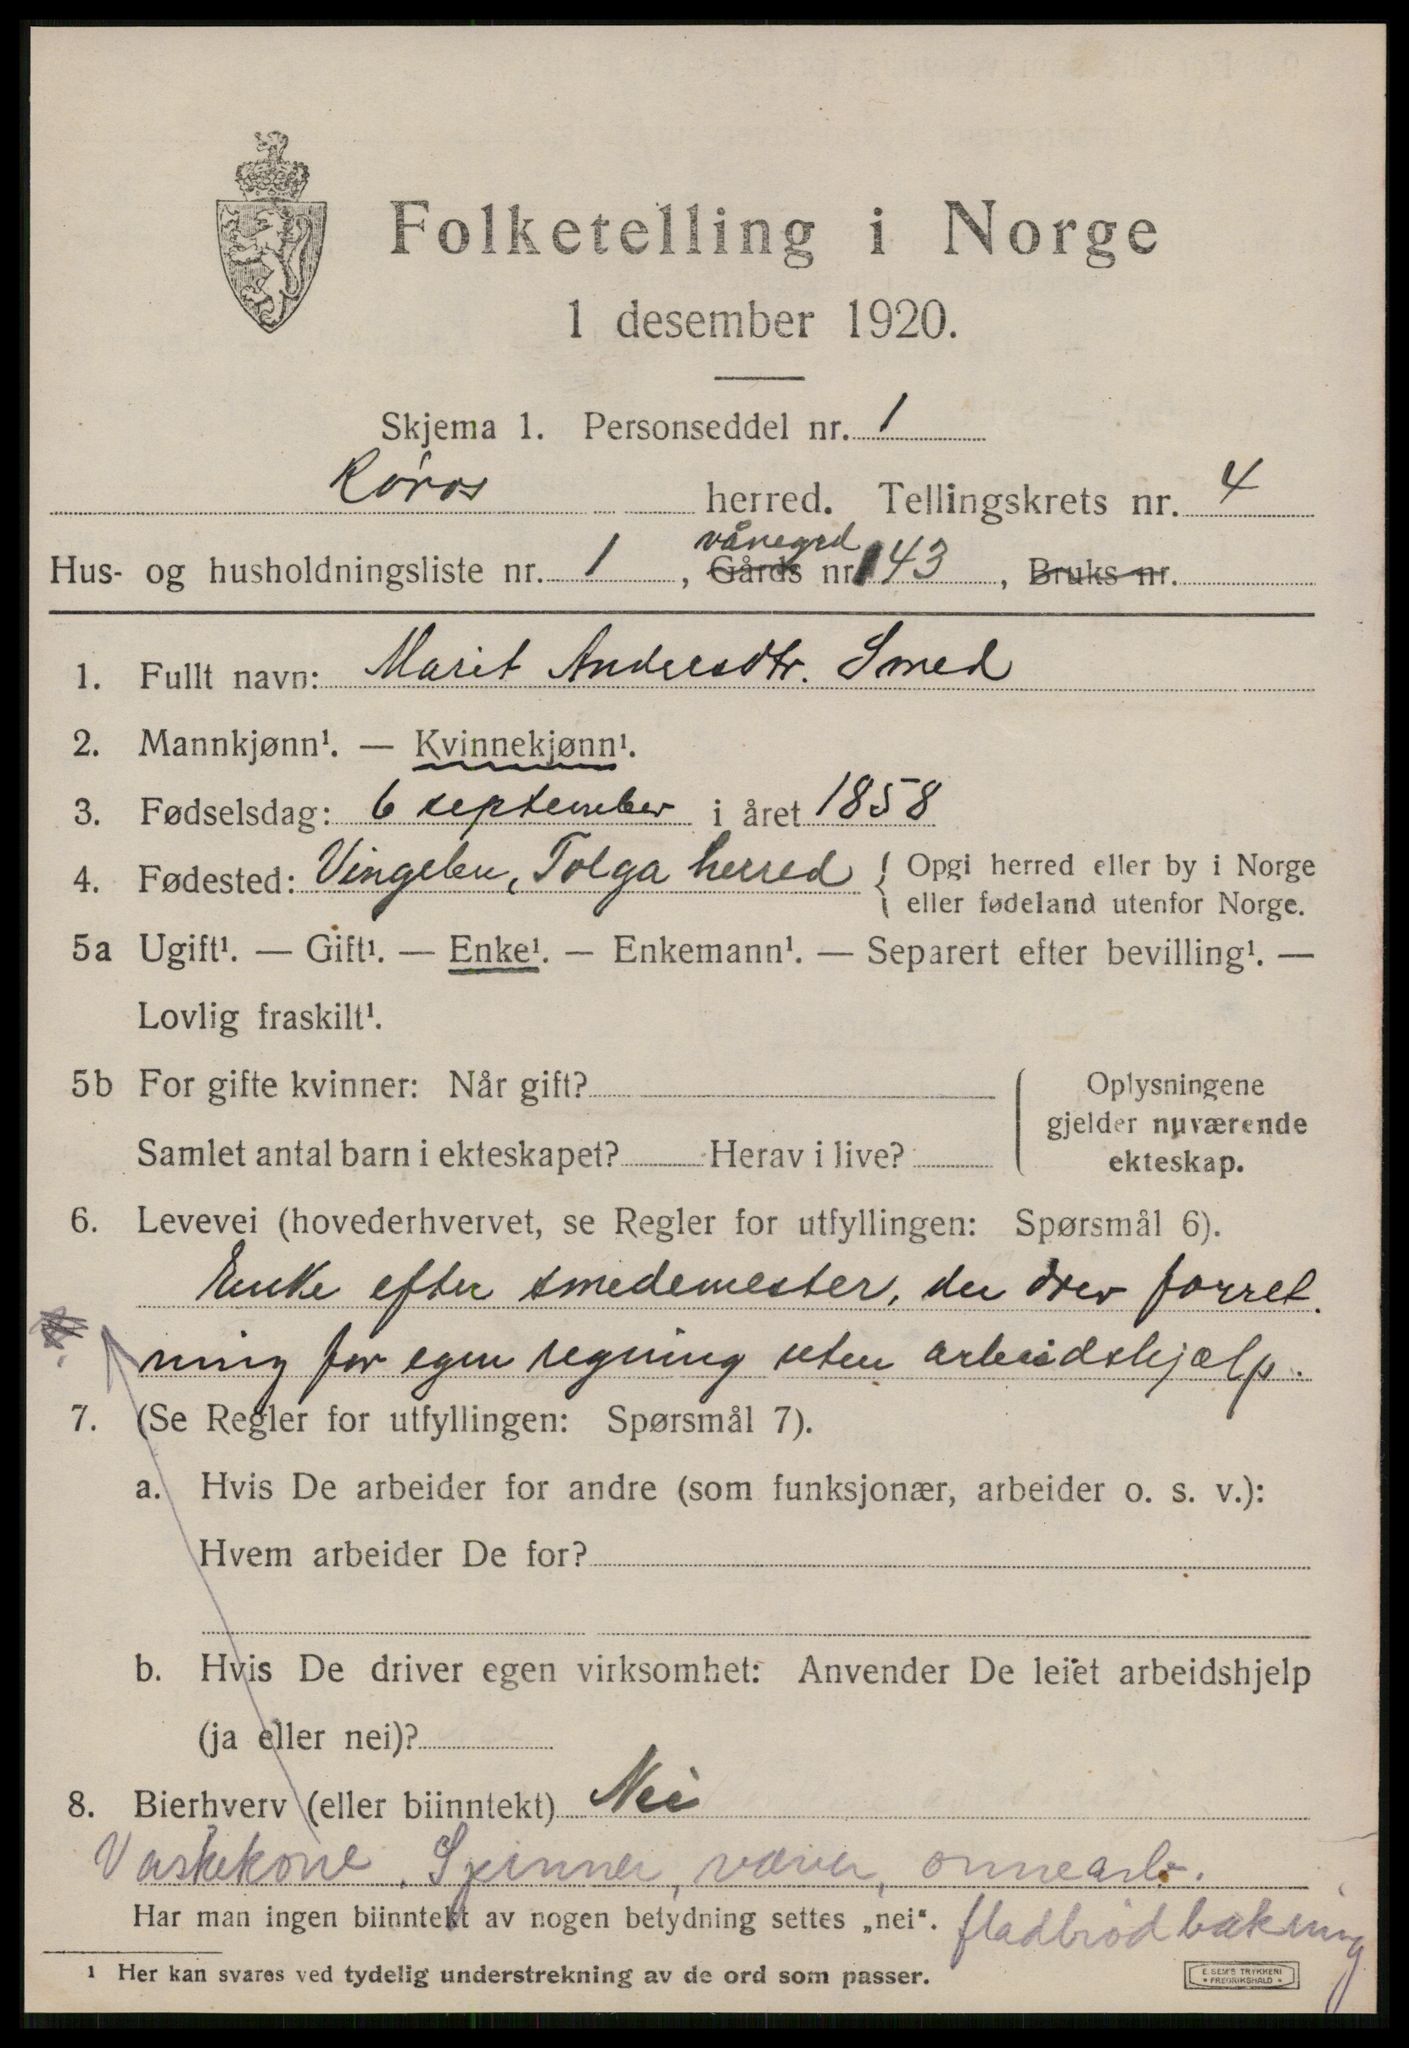 Folketelling i Norge
1 desember 1920.
Skjema 1. Personseddel nr. 1
Røros herred. Tellingskrets nr. 4
vånegrd
Hus- og husholdningsliste nr. 1, Gårds nr. 143, Bruks nr.
1. Fullt navn: Marit Andersdtr. Smed
2. Mannkjønn¹. — Kvinnekjønn¹.
3. Fødselsdag: 6 september i året 1858
4. Fødested: Vingelen, Tolga herred { Opgi herred eller by i Norge
eller fødeland utenfor Norge.
5a Ugift¹. — Gift¹. — Enke¹. — Enkemann¹. — Separert efter bevilling¹. —
Lovlig fraskilt¹.
5b For gifte kvinner: Når gift?
Samlet antal barn i ekteskapet? Herav i live?
Oplysningene
gjelder nuværende
ekteskap.
6. Levevei (hovederhvervet, se Regler for utfyllingen: Spørsmål 6).
Enke efter smedemester, der drev forret
ning for egen regning uten arbeidshjælp.
7. (Se Regler for utfyllingen: Spørsmål 7).
a. Hvis De arbeider for andre (som funksjonær, arbeider o. s. v.):
Hvem arbeider De for?
b. Hvis De driver egen virksomhet: Anvender De leiet arbeidshjelp
(ja eller nei)?
8. Bierhverv (eller biinntekt) Nei
Vaskekone. Spinner, væver, onnearb.
Har man ingen biinntekt av nogen betydning settes „nei“. fladbrødbakning
¹ Her kan svares ved tydelig understrekning av de ord som passer.
E. SEM'S TRYKKERI
• FREDRIKSHALD •